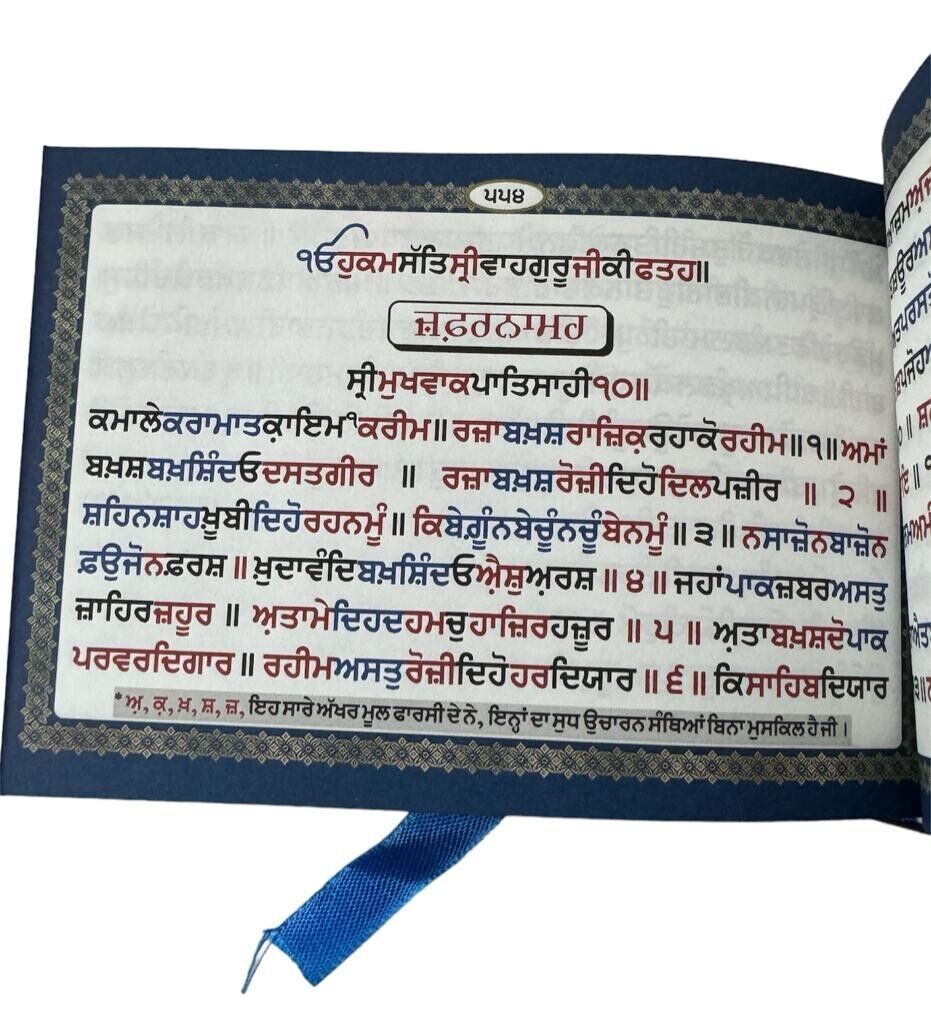 ੫੫੪
ੴਹੁਕਮਸੱਤਿਸ੍ਰੀਵਾਹਗੁਰੂਜੀਕੀਫਤਹ॥
ਜ਼ਫ਼ਰਨਾਮਹ
ਸ੍ਰੀਮੁਖਵਾਕਪਾਤਿਸਾਹੀ੧੦॥
ਕਮਾਲੇਕਰਾਮਾਤਕ਼ਾਇਮ੧ਕਰੀਮ॥ ਰਜ਼ਾਬਖ਼ਸ਼ਰਾਜ਼ਿਕ਼ਰਹਾਕੋਰਹੀਮ॥੧॥ਅਮਾਂ
ਬਖ਼ਸ਼ਬਖ਼ਸ਼ਿੰਦਓਦਸਤਗੀਰ ॥ ਰਜ਼ਾਬਖ਼ਸ਼ਰੋਜ਼ੀਦਿਹੋਦਿਲਪਜ਼ੀਰ ॥ ੨ ॥
ਸ਼ਹਿਨਸ਼ਾਹਖ਼ੂਬੀਦਿਹੋਰਹਨਮੂੰ॥ ਕਿਬੇਗ਼ੂੰਨਬੇਚੂੰਨਚੂੰਬੇਨਮੂੰ॥੩॥ਨਸਾਜ਼ੋਨਬਾਜ਼ੋਨ
ਫ਼ਉਜੋਨਫ਼ਰਸ਼॥ਖ਼ੁਦਾਵੰਦਿਬਖ਼ਸ਼ਿੰਦਓਐਸ਼ੁਅ਼ਰਸ਼॥੪॥ਜਹਾਂਪਾਕਜ਼ਬਰਅਸਤੁ
ਜ਼ਾਹਿਰਜ਼ਹੂਰ ॥ ਅ਼ਤਾਮੇਦਿਹਦਹਮਚੁਹਾਜ਼ਿਰਹਜ਼ੂਰ ॥ ੫ ॥ ਅ਼ਤਾਬਖ਼ਸ਼ਦੋਪਾਕ
ਪਰਵਰਦਿਗਾਰ॥ ਰਹੀਮਅਸਤੁਰੋਜ਼ੀਦਿਹੋਹਰਦਿਯਾਰ॥੬॥ਕਿਸਾਹਿਬਦਿਯਾਰ
* ਅ਼, ਕ਼, ਖ਼, ਸ਼, ਜ਼, ਇਹ ਸਾਰੇ ਅੱਖਰ ਮੂਲ ਫਾਰਸੀ ਦੇ ਨੇ, ਇਨ੍ਹਾਂ ਦਾ ਸੁਧ ਉਚਾਰਨ ਸੰਥਿਆਂ ਬਿਨਾ ਮੁਸਕਿਲ ਹੈ ਜੀ ।